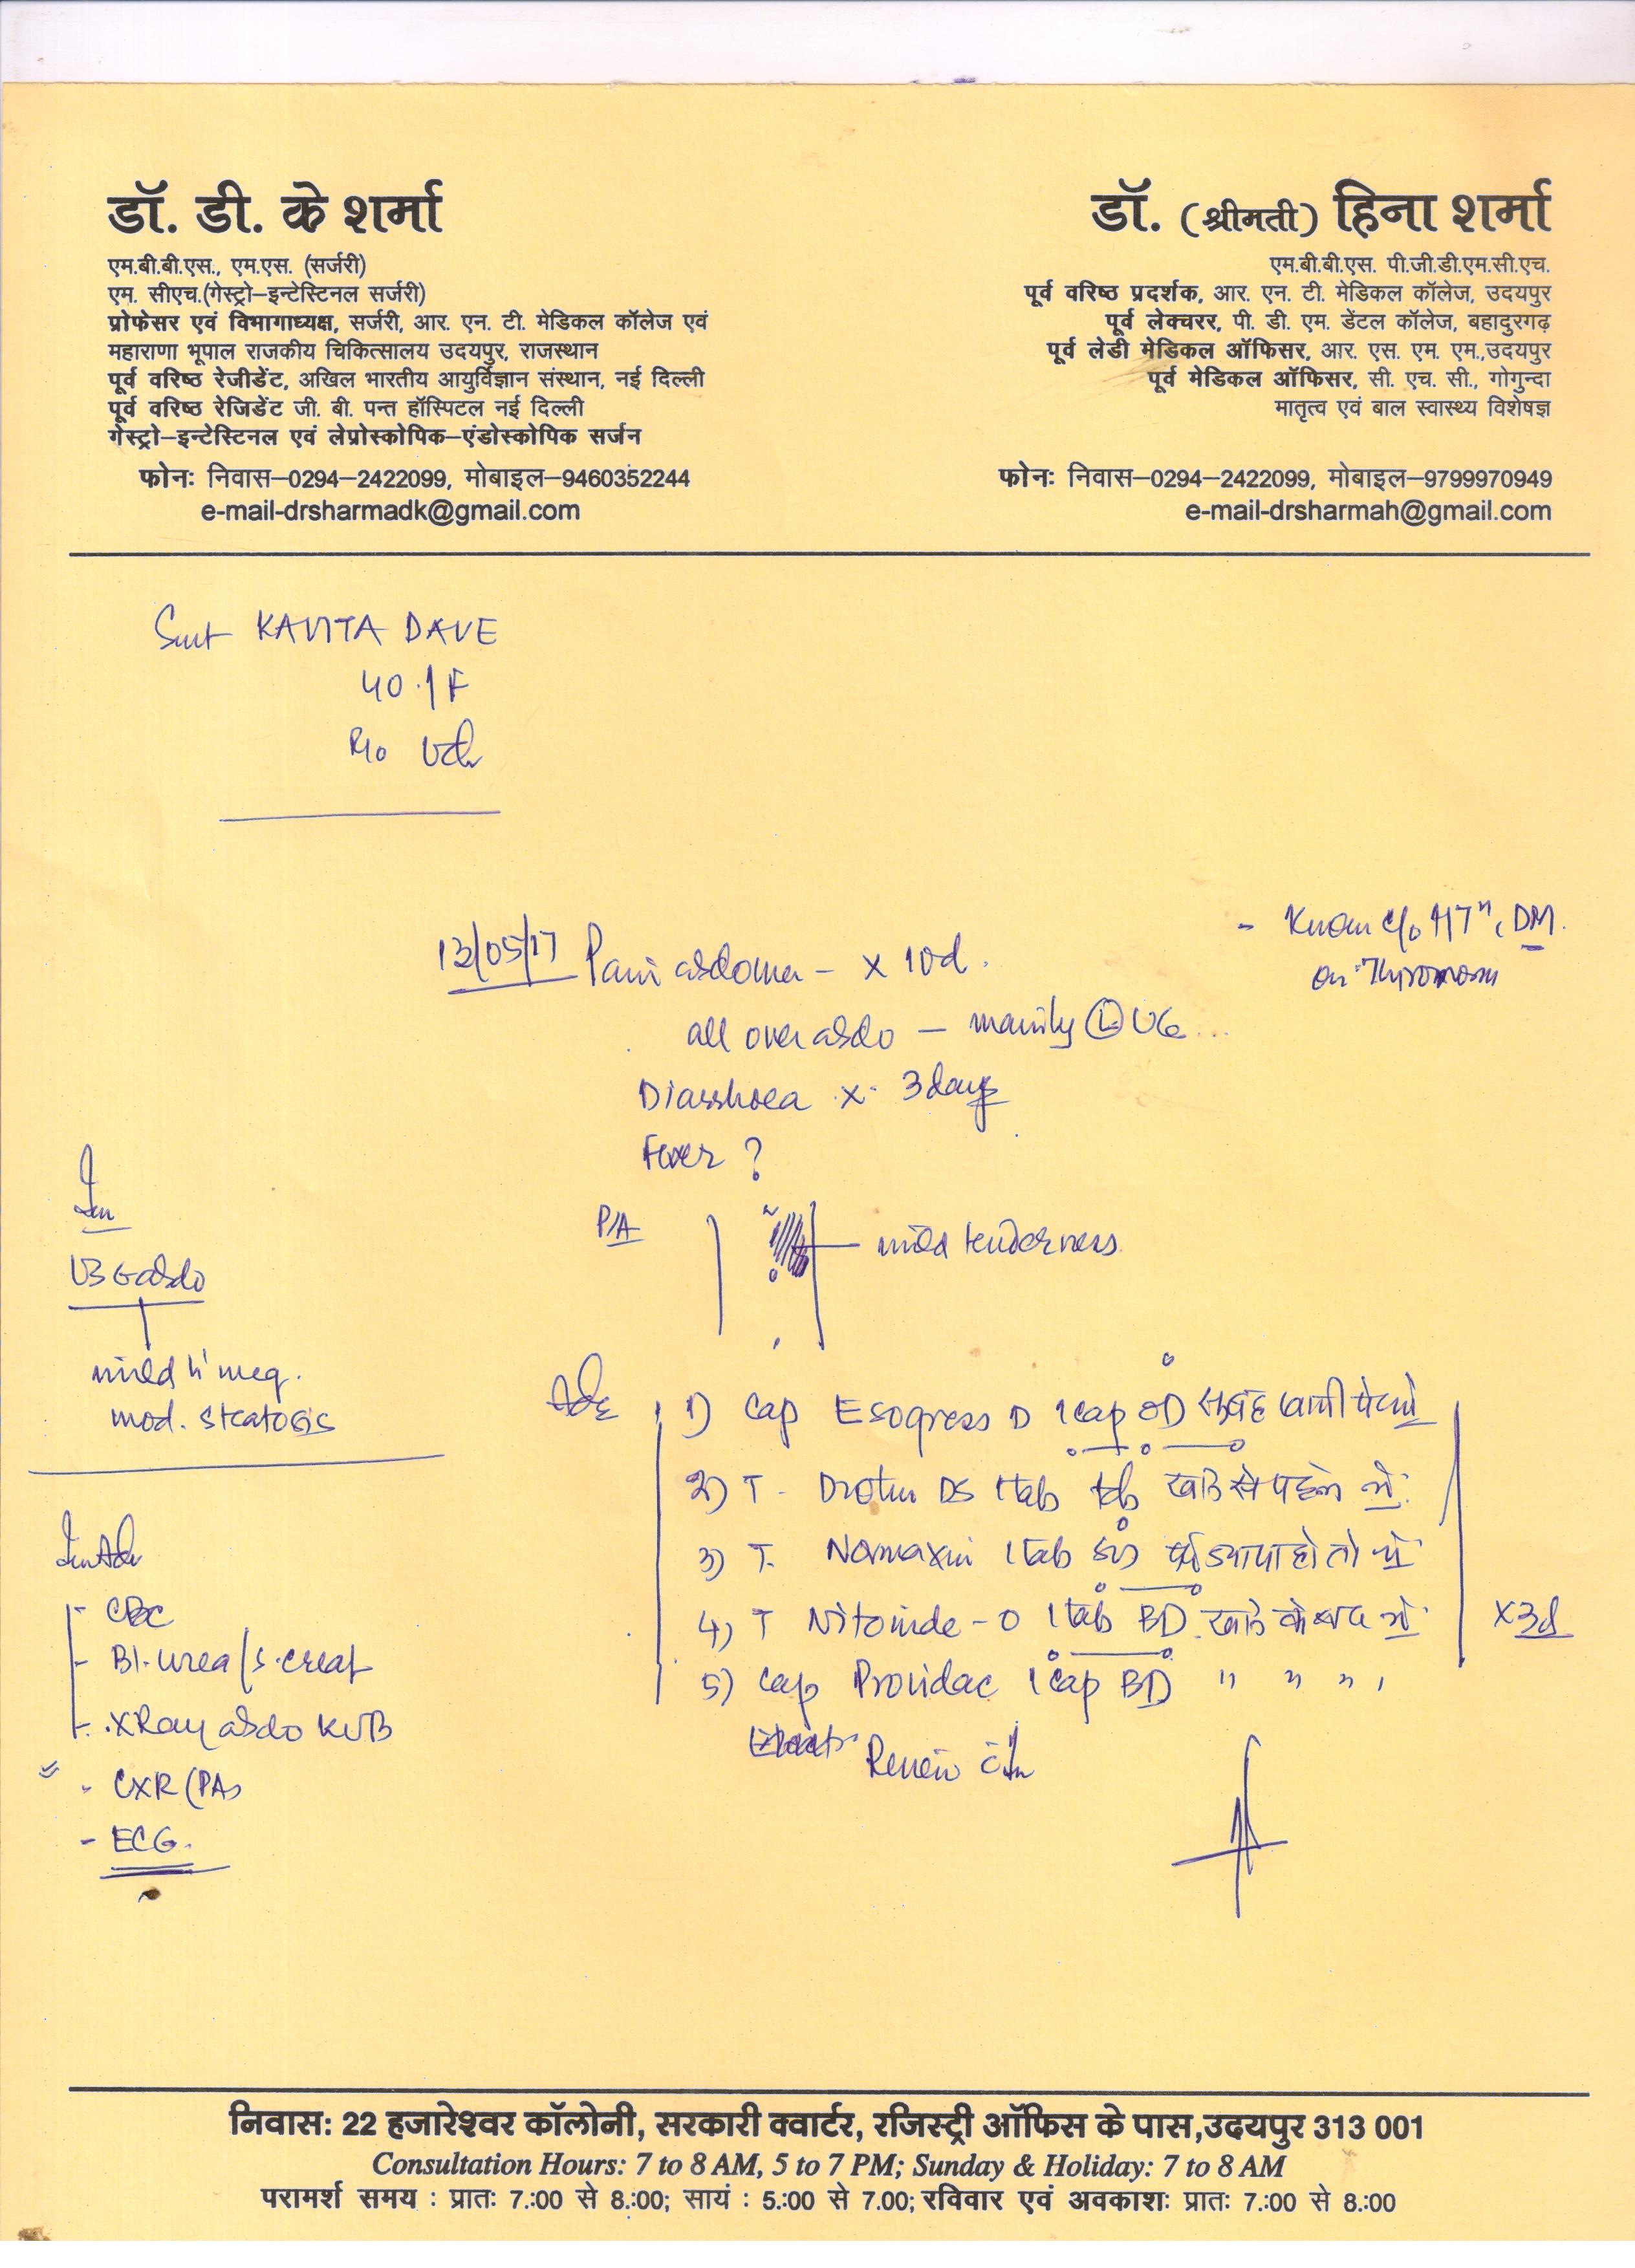 डॉ. डी. के शर्मा
एम.बी.बी.एस., एम.एस. (सर्जरी)
एम. सीएच.(गेस्ट्रो–इन्टेस्टिनल सर्जरी)
प्रोफेसर एवं विभागाध्यक्ष, सर्जरी, आर. एन. टी. मेडिकल कॉलेज एवं
महाराणा भूपाल राजकीय चिकित्सालय उदयपुर, राजस्थान
पूर्व वरिष्ठ रेजीडेंट, अखिल भारतीय आयुर्विज्ञान संस्थान, नई दिल्ली
पूर्व वरिष्ठ रेजिडेंट जी. बी. पन्त हॉस्पिटल नई दिल्ली
गेस्ट्रो–इन्टेस्टिनल एवं लेप्रोस्कोपिक–एंडोस्कोपिक सर्जन
फोनः निवास–0294–2422099, मोबाइल–9460352244
e-mail-drsharmadk@gmail.com
डॉ. (श्रीमती) हिना शर्मा
एम.बी.बी.एस. पी.जी.डी.एम.सी.एच.
पूर्व वरिष्ठ प्रदर्शक, आर. एन. टी. मेडिकल कॉलेज, उदयपुर
पूर्व लेक्चरर, पी. डी. एम. डेंटल कॉलेज, बहादुरगढ़
पूर्व लेडी मेडिकल ऑफिसर, आर. एस. एम. एम.,उदयपुर
पूर्व मेडिकल ऑफिसर, सी. एच. सी., गोगुन्दा
मातृत्व एवं बाल स्वास्थ्य विशेषज्ञ
फोनः निवास–0294–2422099, मोबाइल–9799970949
e-mail-drsharmah@gmail.com
Smt KAVITA DAVE
40 / F
R/o Udr
- Known c/o HTn, DM.
on Thyronorm
13/05/17 Pain abdomen - x 10d.
all over abdo - mainly (L)
Diarrhoea x 3 days
Fever ?
P/A mild tenderness
Inv
USG abdo
mild h'meg.
mod. steatosis
Adv 1) Cap Esogress D 1 cap OD सुबह खाली पेट लें
2) T. Drotin DS 1 tab खाने से पहले लें
3) T. Normaxin 1 tab हो तो लें
4) T Nitonide-O 1 tab BD खाने के बाद लें x3d
5) Cap Providac 1 cap BD " " "
Review
Inv Adv
- CBC
- Bl. urea/s. creat
- X Ray abdo KUB
- CXR (PA)
- ECG.
निवास: 22 हजारेश्वर कॉलोनी, सरकारी क्वार्टर, रजिस्ट्री ऑफिस के पास,उदयपुर 313 001
Consultation Hours: 7 to 8 AM, 5 to 7 PM; Sunday & Holiday: 7 to 8 AM
परामर्श समय : प्रातः 7.:00 से 8.:00; सायं : 5.:00 से 7.00; रविवार एवं अवकाशः प्रातः 7.:00 से 8.:00